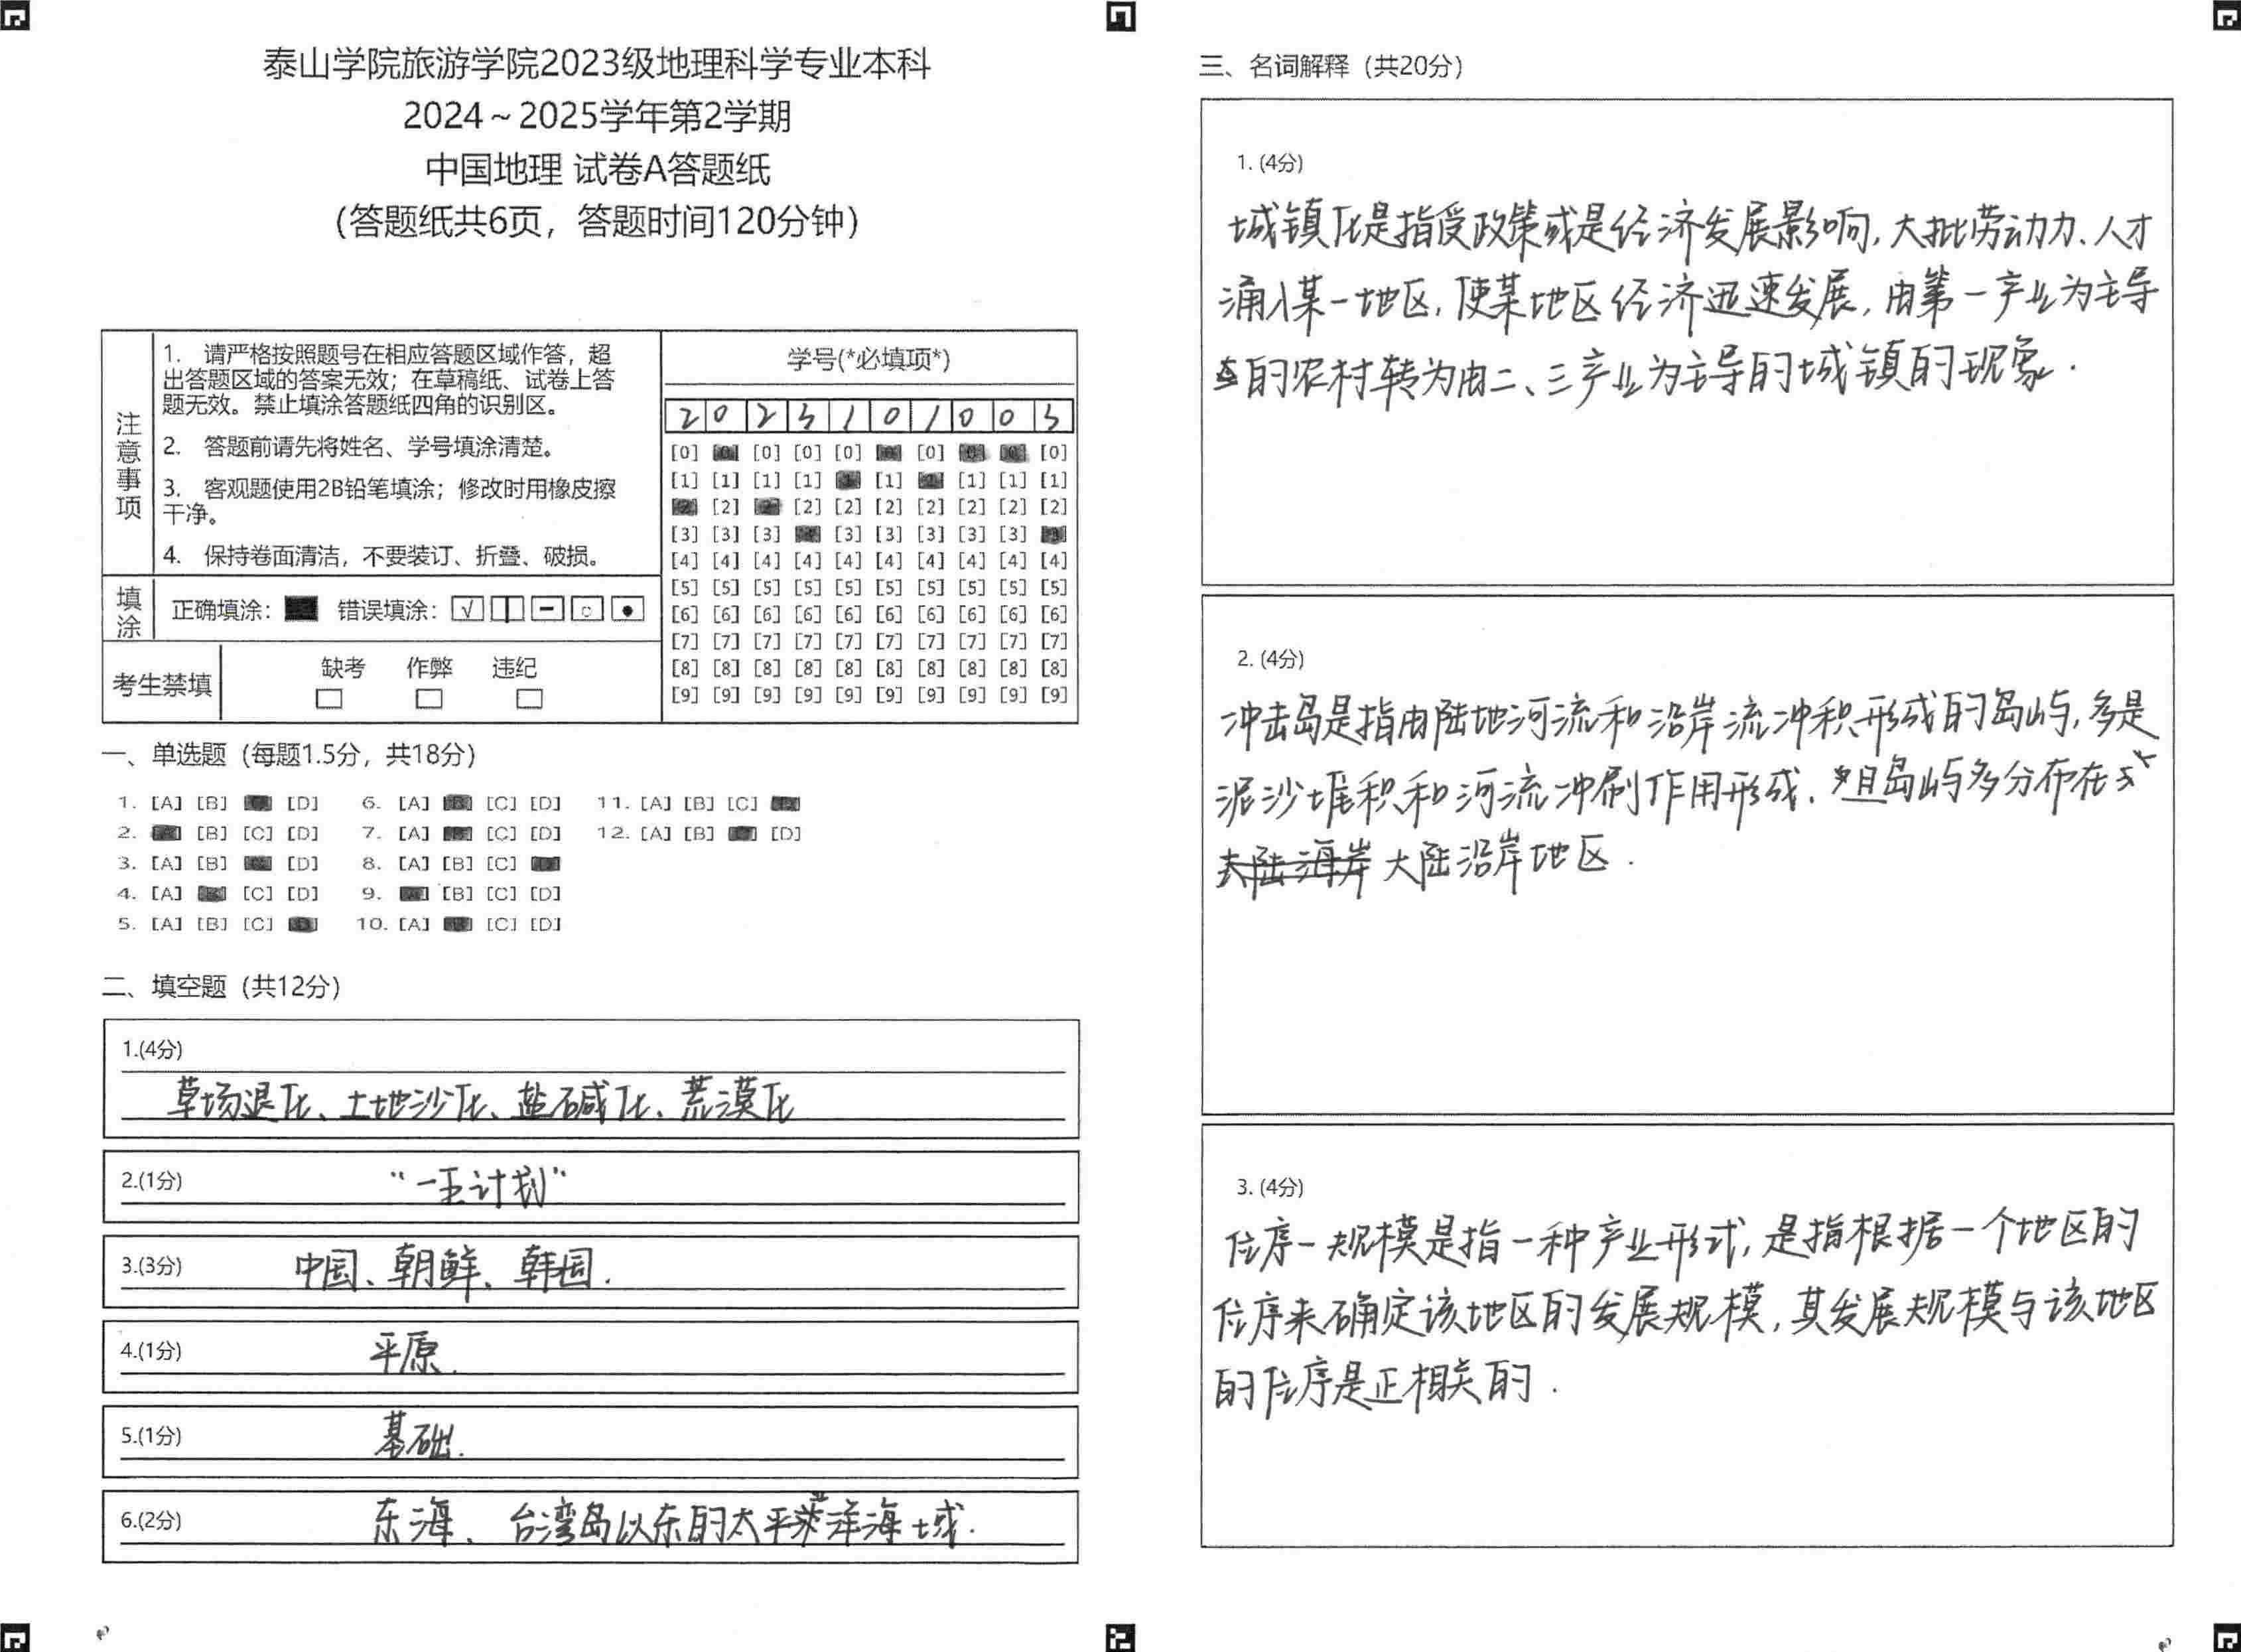 泰山学院旅游学院2023级地理科学专业本科
2024～2025学年第2学期
中国地理 试卷A答题纸
（答题纸共6页，答题时间120分钟）
注意事项
1. 请严格按照题号在相应答题区域作答，超
出答题区域的答案无效；在草稿纸、试卷上答
题无效。禁止填涂答题纸四角的识别区。
2. 答题前请先将姓名、学号填涂清楚。
3. 客观题使用2B铅笔填涂；修改时用橡皮擦
干净。
4. 保持卷面清洁，不要装订、折叠、破损。
填涂
正确填涂： 错误填涂：
考生禁填
缺考 作弊 违纪
学号(*必填项*)
2 0 2 3 1 0 1 0 0 3
[0] [0] [0] [0] [0] [0] [0] [0] [0] [0]
[1] [1] [1] [1] [1] [1] [1] [1] [1] [1]
[2] [2] [2] [2] [2] [2] [2] [2] [2] [2]
[3] [3] [3] [3] [3] [3] [3] [3] [3] [3]
[4] [4] [4] [4] [4] [4] [4] [4] [4] [4]
[5] [5] [5] [5] [5] [5] [5] [5] [5] [5]
[6] [6] [6] [6] [6] [6] [6] [6] [6] [6]
[7] [7] [7] [7] [7] [7] [7] [7] [7] [7]
[8] [8] [8] [8] [8] [8] [8] [8] [8] [8]
[9] [9] [9] [9] [9] [9] [9] [9] [9] [9]
一、单选题（每题1.5分，共18分）
1. [A] [B] [C] [D] 6. [A] [B] [C] [D] 11. [A] [B] [C] [D]
2. [A] [B] [C] [D] 7. [A] [B] [C] [D] 12. [A] [B] [C] [D]
3. [A] [B] [C] [D] 8. [A] [B] [C] [D]
4. [A] [B] [C] [D] 9. [A] [B] [C] [D]
5. [A] [B] [C] [D] 10. [A] [B] [C] [D]
二、填空题（共12分）
1.(4分)
草场退化、土地沙化、盐碱化、荒漠化
2.(1分) “一王计划”
3.(3分) 中国、朝鲜、韩国.
4.(1分) 平原.
5.(1分) 基础.
6.(2分) 东海、台湾岛以东的太平洋海域.
三、名词解释（共20分）
1. (4分)
城镇化是指受政策或是经济发展影响，大批劳动力、人才
涌入某一地区，使某地区经济迅速发展，由第一产业为主导
的农村转为由二、三产业为主导的城镇的现象.
2. (4分)
冲击岛是指由陆地河流和沿岸流冲积形成的岛屿，多是
泥沙堆积和河流冲刷作用形成. 且岛屿多分布在
大陆海岸 大陆沿岸地区.
3. (4分)
位序一规模是指一种产业形式，是指根据一个地区的
位序来确定该地区的发展规模，其发展规模与该地区
的位序是正相关的.